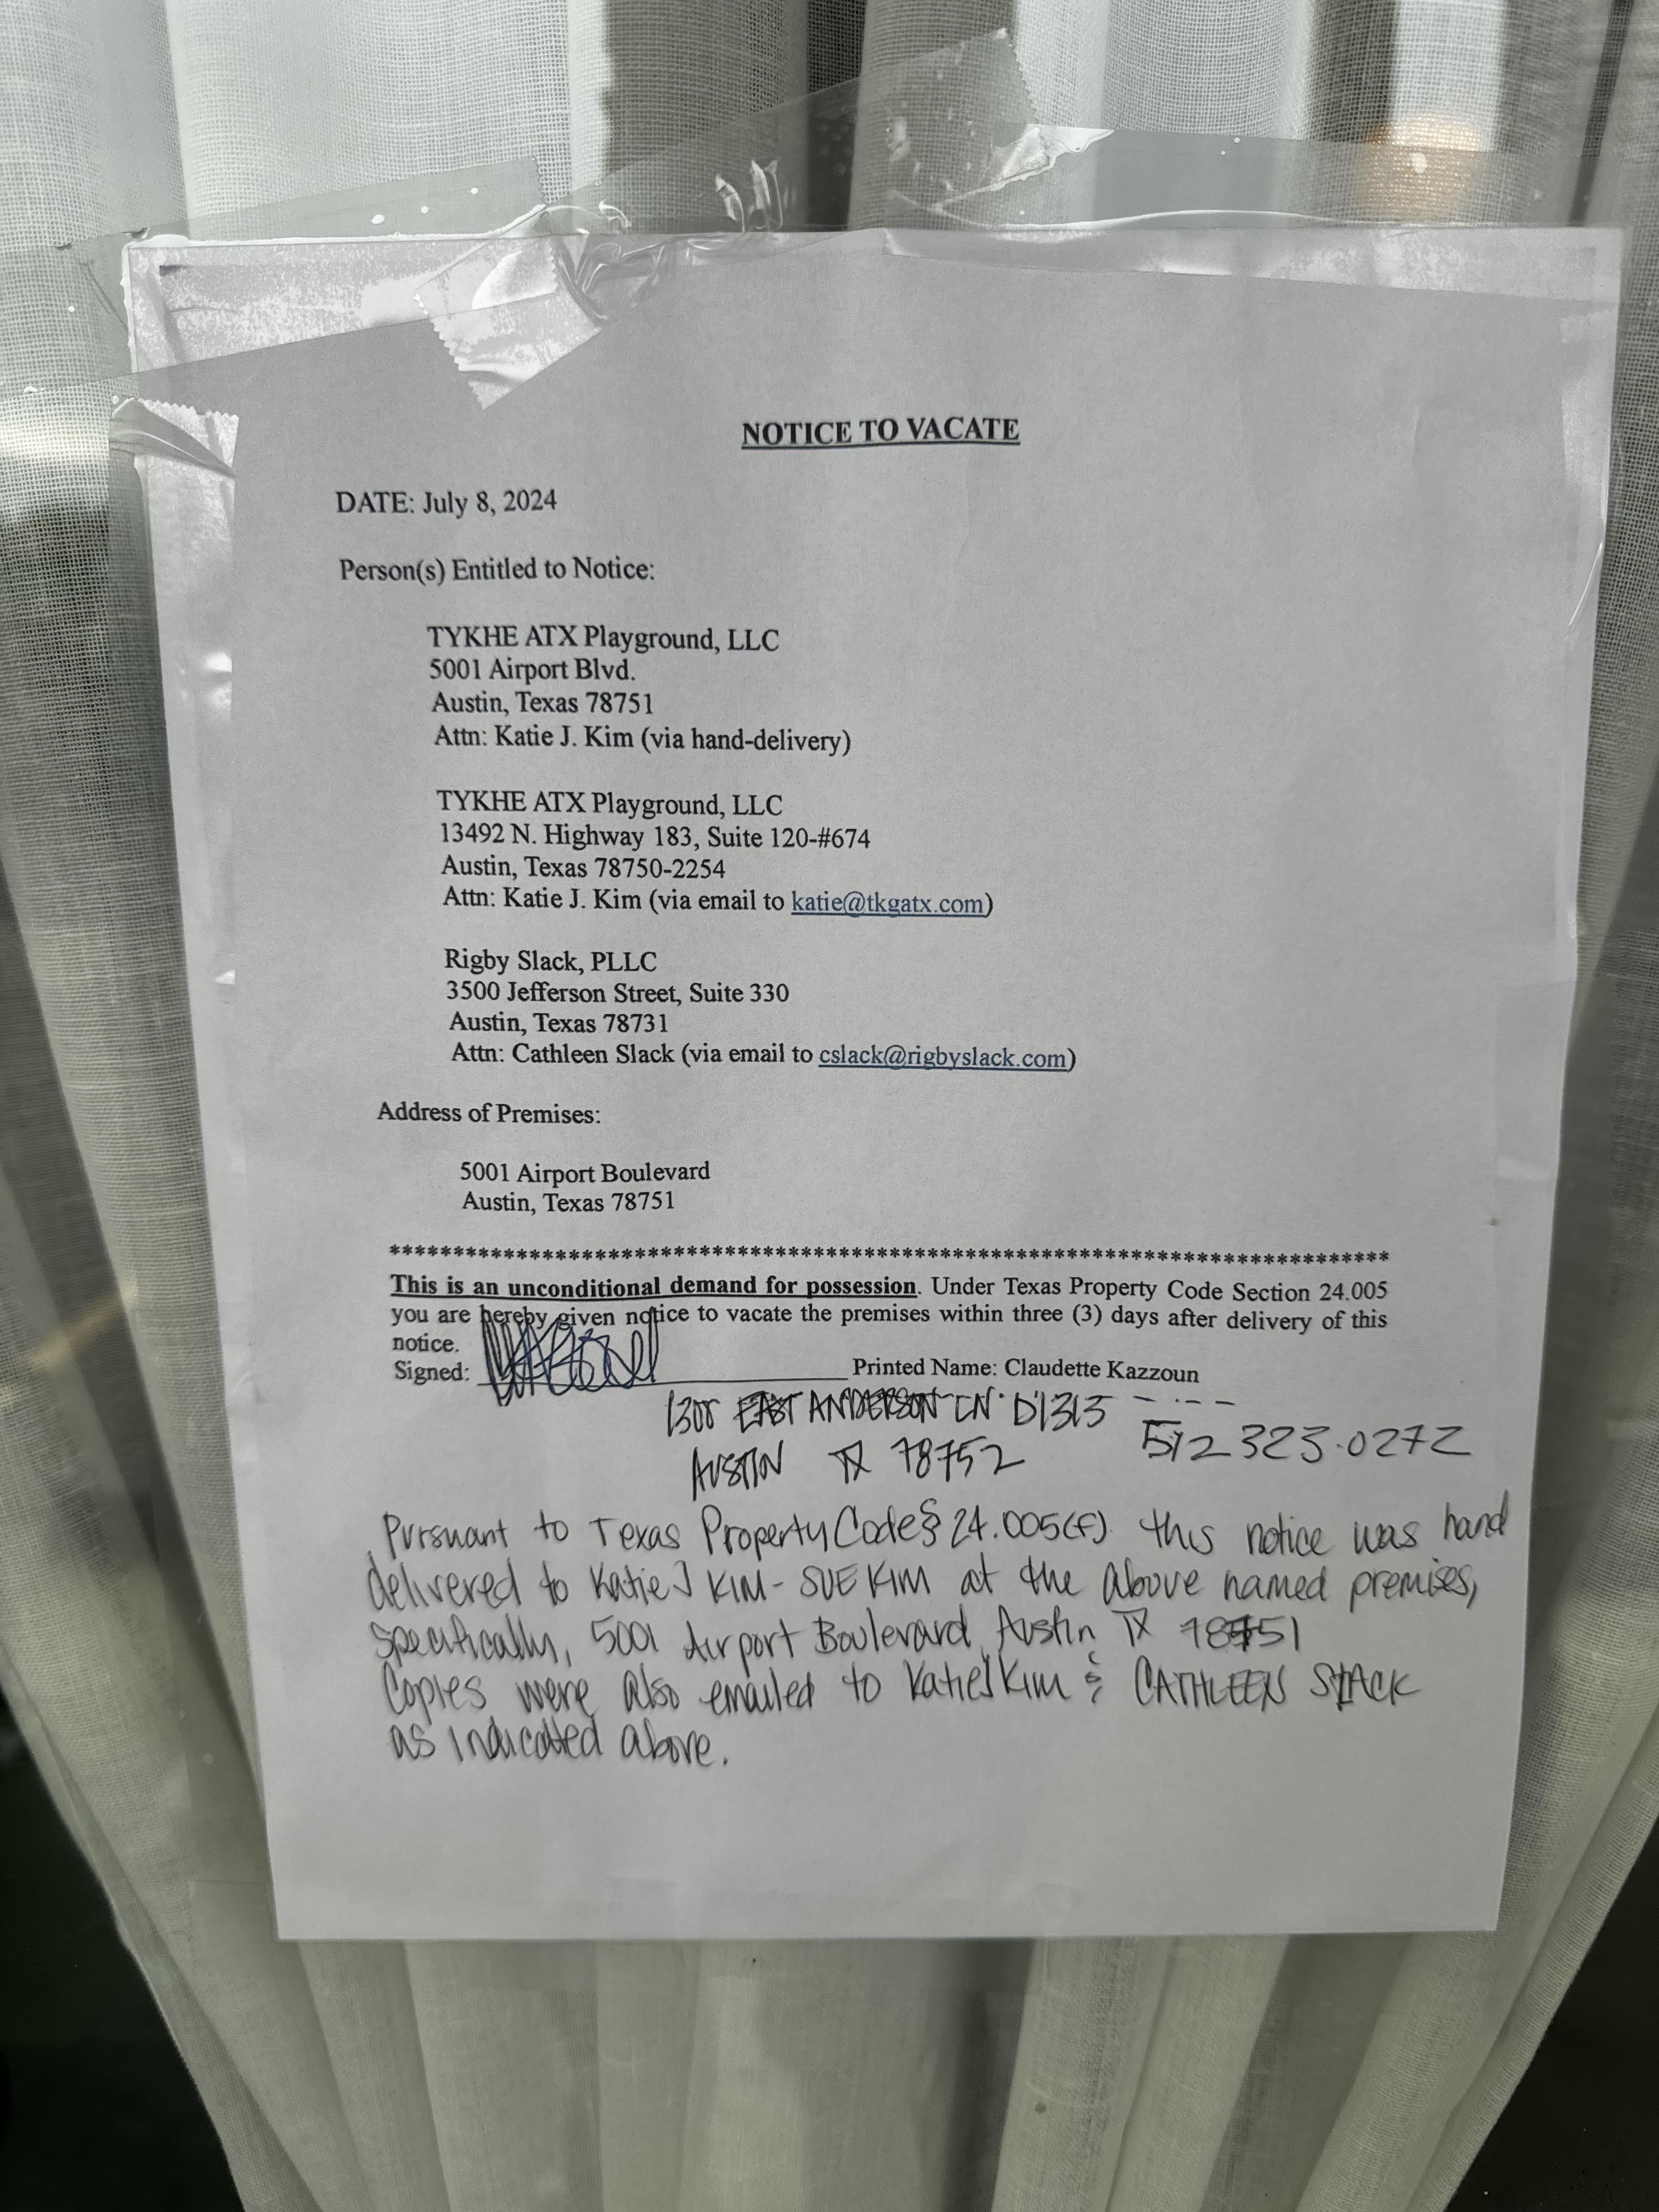 NOTICE TO VACATE
DATE: July 8, 2024
Person(s) Entitled to Notice:
TYKHE ATX Playground, LLC
5001 Airport Blvd.
Austin, Texas 78751
Attn: Katie J. Kim (via hand-delivery)
TYKHE ATX Playground, LLC
13492 N. Highway 183, Suite 120-#674
Austin, Texas 78750-2254
Attn: Katie J. Kim (via email to katie@tkgatx.com)
Rigby Slack, PLLC
3500 Jefferson Street, Suite 330
Austin, Texas 78731
Attn: Cathleen Slack (via email to cslack@rigbyslack.com)
Address of Premises:
5001 Airport Boulevard
Austin, Texas 78751
********************************************************************************
This is an unconditional demand for possession. Under Texas Property Code Section 24.005
you are hereby given notice to vacate the premises within three (3) days after delivery of this
notice.
Signed: Printed Name: Claudette Kazzoun
1300 EAST ANDERSON LN. D1313
AUSTIN TX 78752 512 323.0272
Pursuant to Texas Property Code § 24.005(f) this notice was hand
delivered to Katie J KIM - SUE KIM at the above named premises,
specifically, 5001 Airport Boulevard, Austin TX 78751
Copies were also emailed to Katie J Kim & CATHLEEN SLACK
as indicated above.